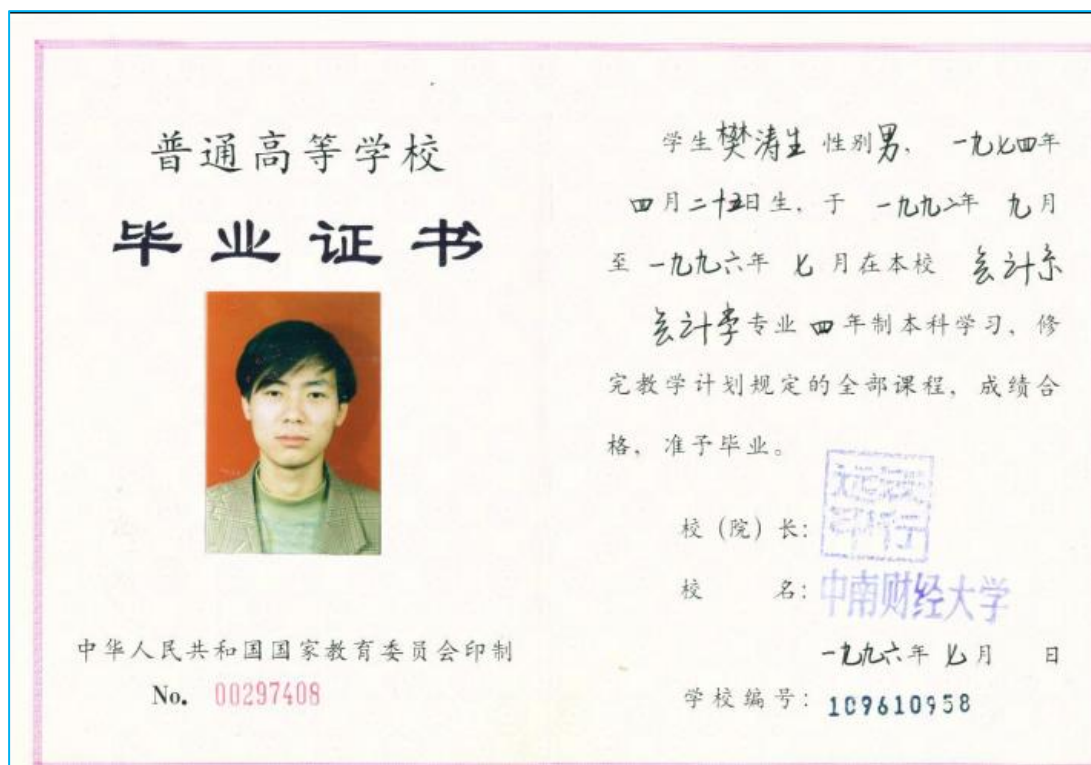 普通高等学校
毕业证书
中华人民共和国国家教育委员会印制
No. 00297408
学生樊涛生 性别男，一九七四年
四月二十五日生，于 一九九二年 九月
至 一九九六年 七月在本校 会计系
会计学专业 四年制本科学习，修
完教学计划规定的全部课程，成绩合
格，准予毕业。
校（院）长：
校 名：中南财经大学
一九九六年 七月 日
学校编号：109610958